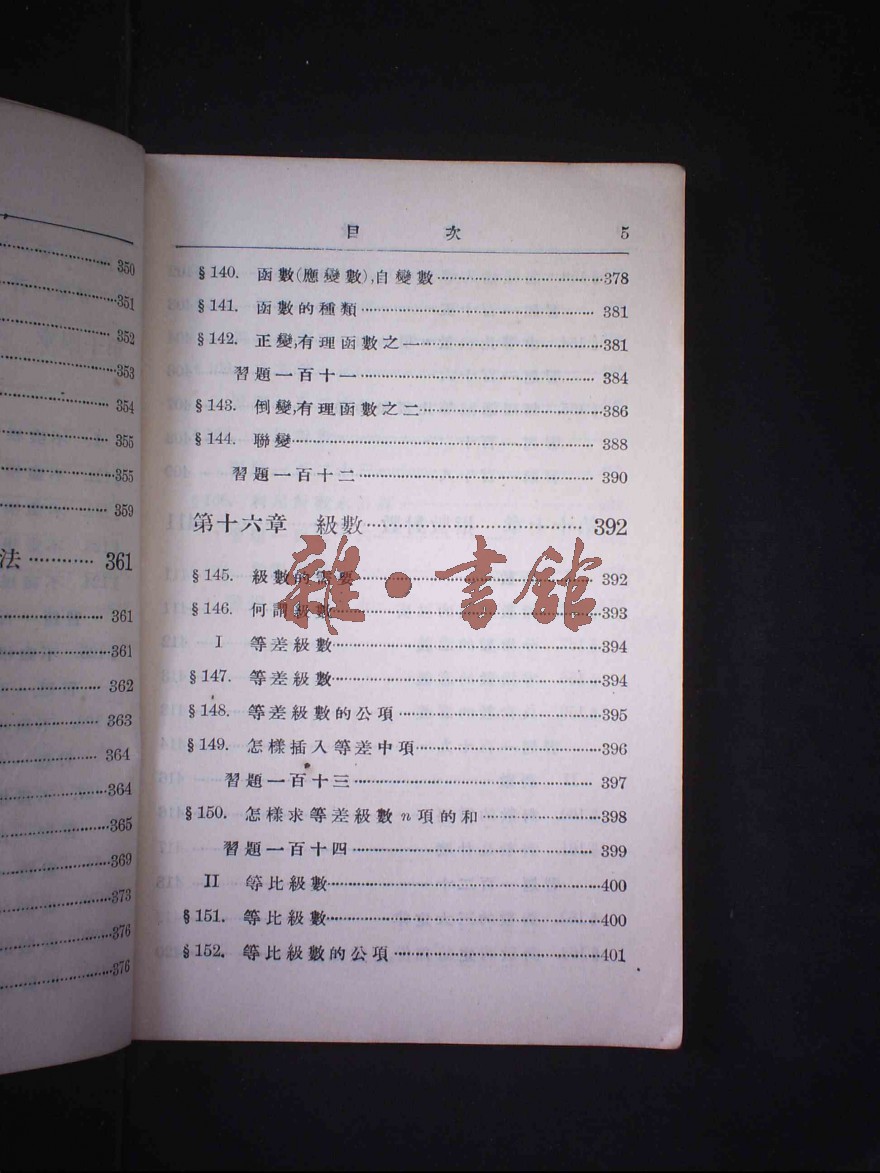 350
351
352
353
354
355
355
359
法………… 361
361
361
362
363
364
364
365
369
373
376
376
目 次 5
§140. 函數(應變數),自變數……………378
§141. 函數的種類……………381
§142. 正變,有理函數之一……………381
習題一百十一……………384
§143. 倒變,有理函數之二……………386
§144. 聯變……………388
習題一百十二……………390
第十六章 級數……………392
§145. 級數的需要……………392
§146. 何謂級數……………393
I 等差級數……………394
§147. 等差級數……………394
§148. 等差級數的公項……………395
§149. 怎樣插入等差中項……………396
習題一百十三……………397
§150. 怎樣求等差級數n項的和……………398
習題一百十四……………399
II 等比級數……………400
§151. 等比級數……………400
§152. 等比級數的公項……………401
雜·書館